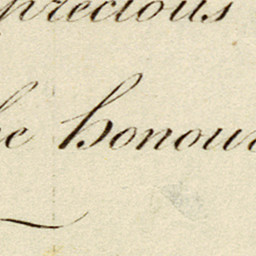 precious
he honour